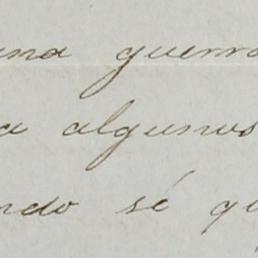 una guerra
a algunos
ndo sé qu